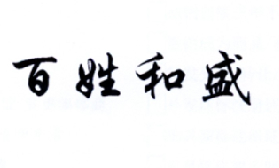 百姓和盛